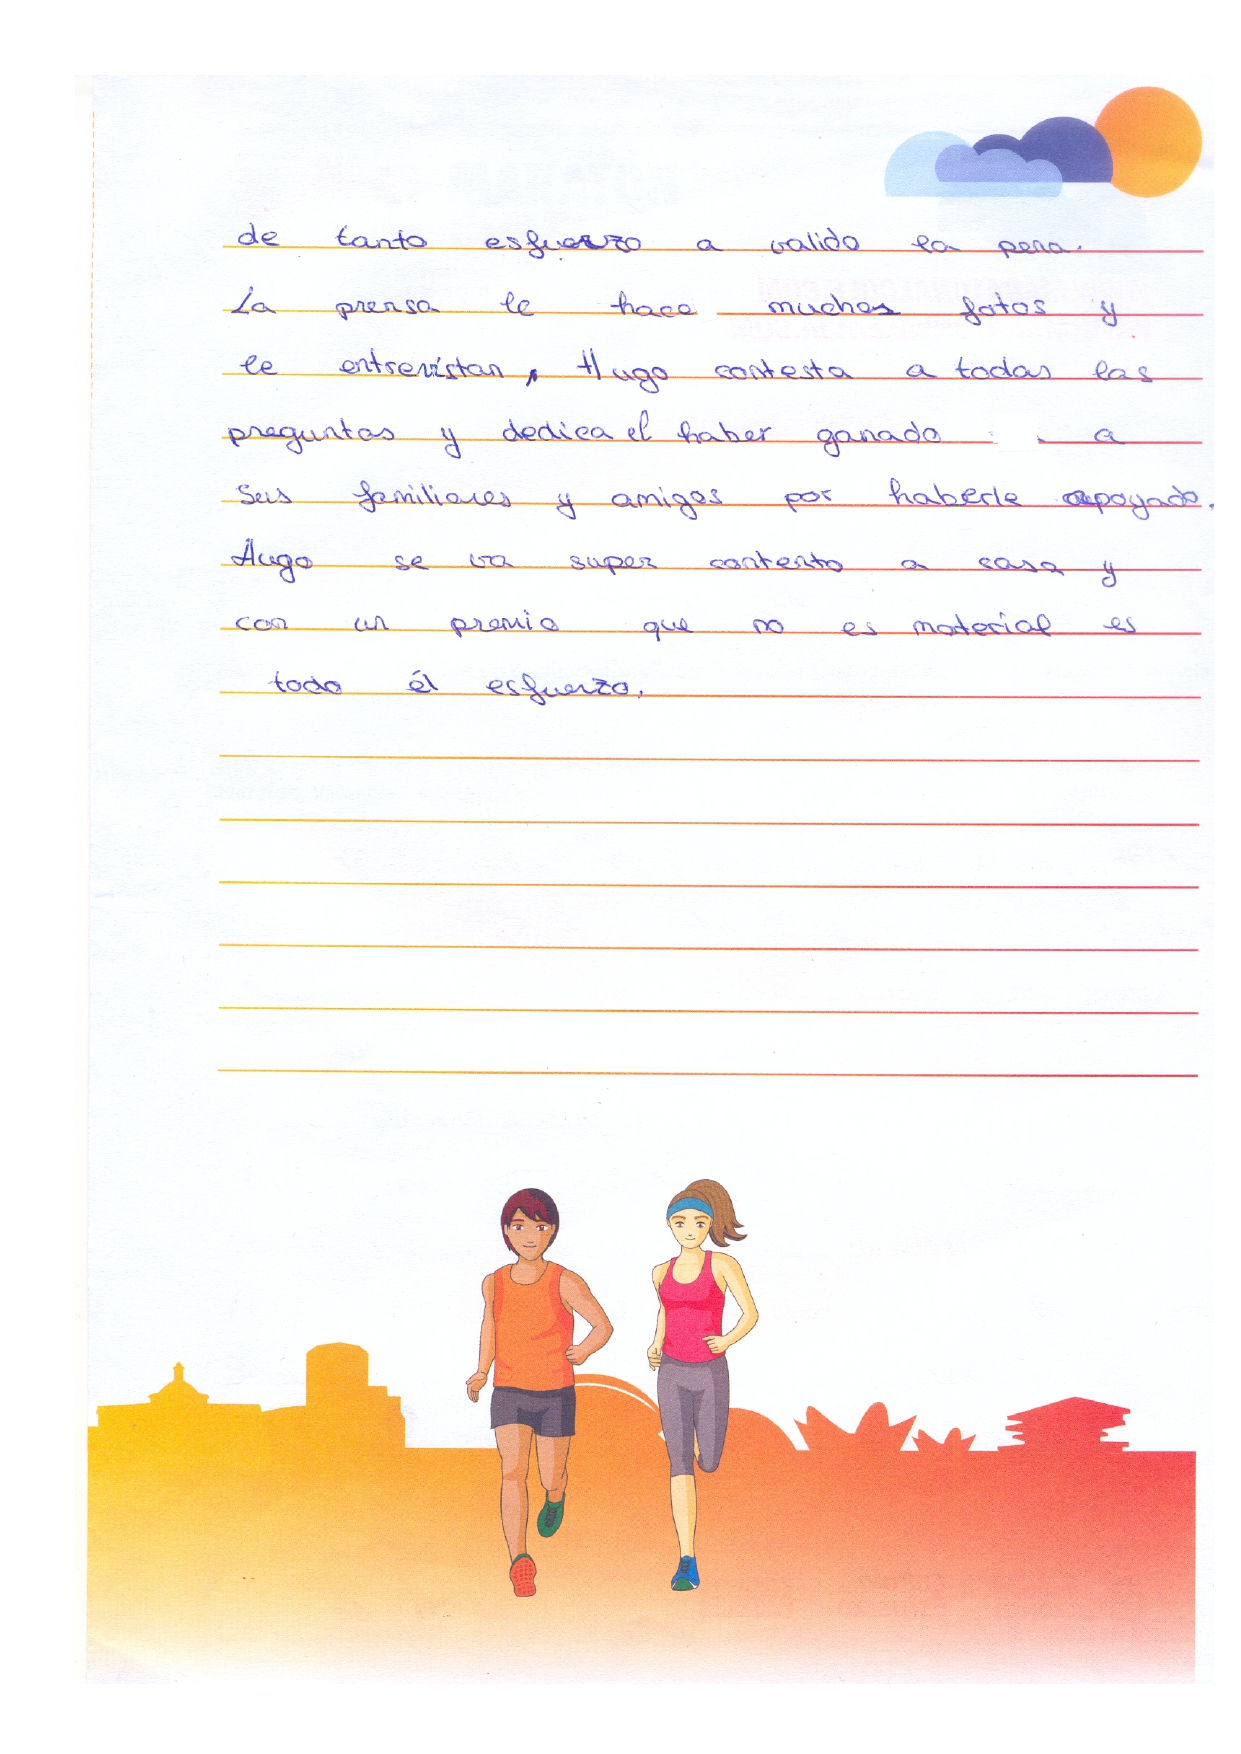 de tanto esfuerzo a valido la pena.
La prensa le hace muchas fotos y
le entrevistan, Hugo contesta a todas las
preguntas y dedica el haber ganado a
sus familiares y amigos por haberle apoyado.
Hugo se va super contento a casa y
con un premio que no es material es
todo él esfuerzo.